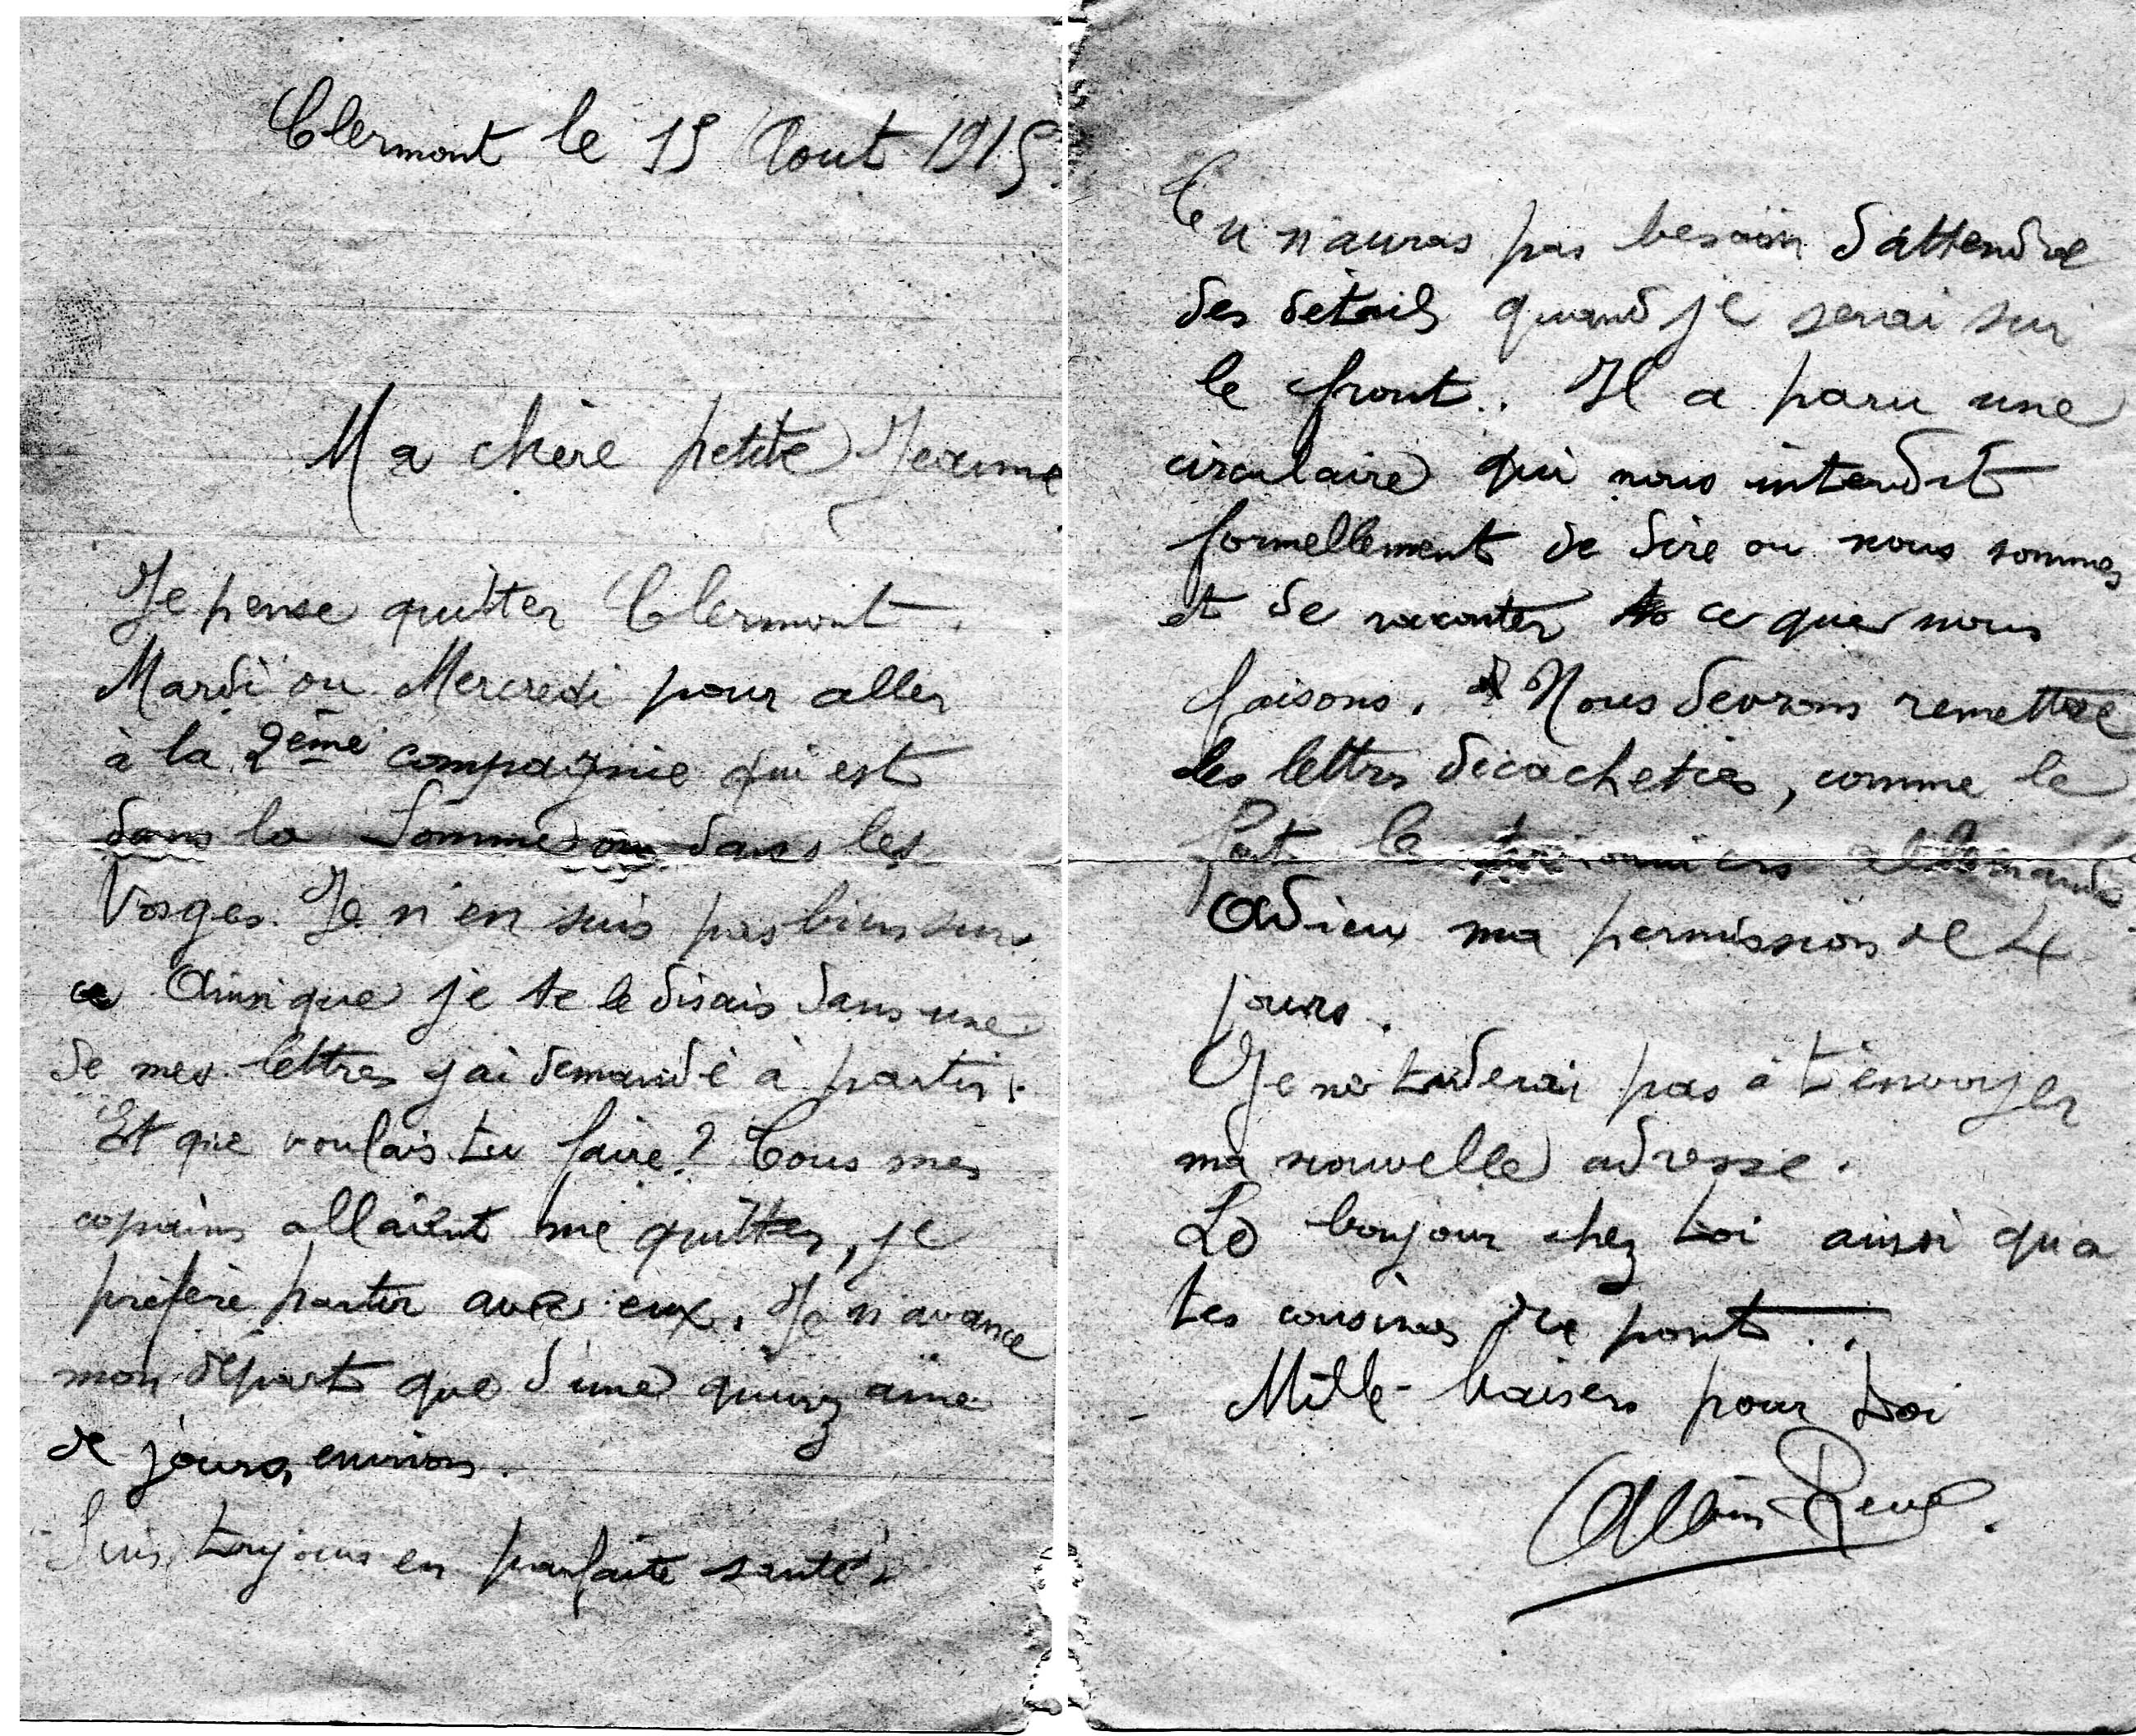 Clermont le 15 Aout 1915.
Ma chère petite Jeanne
Je pense quitter Clermont.
Mardi ou Mercredi pour aller
à la 2ème compagnie qui est
dans la Somme ou dans les
Vosges. Je n'en suis pas bien sur.
Ainsi que je te le disais dans une
de mes lettres j'ai demandé à partir.
Et que voulais tu faire? Tous mes
copains allaient me quitter, je
préfère partir avec eux. Je n'avance
mon départ que d'une quinzaine
de jours environ.
Suis toujours en parfaite santé.
Tu n'auras pas besoin d'attendre
des détails quand je serai sur
le front.. Il a paru une
circulaire qui nous interdit
formellement de dire ou nous sommes
et de raconter ce que nous
faisons. Nous devrons remettre
les lettres décachetées, comme le
font le prisonniers allemands
Adieu ma permission de 4
jours.
Je ne tarderai pas à t'envoyer
ma nouvelle adresse.
Le bonjour chez toi ainsi qu'a
tes cousines du pont..
Mille baisers pour toi
René.